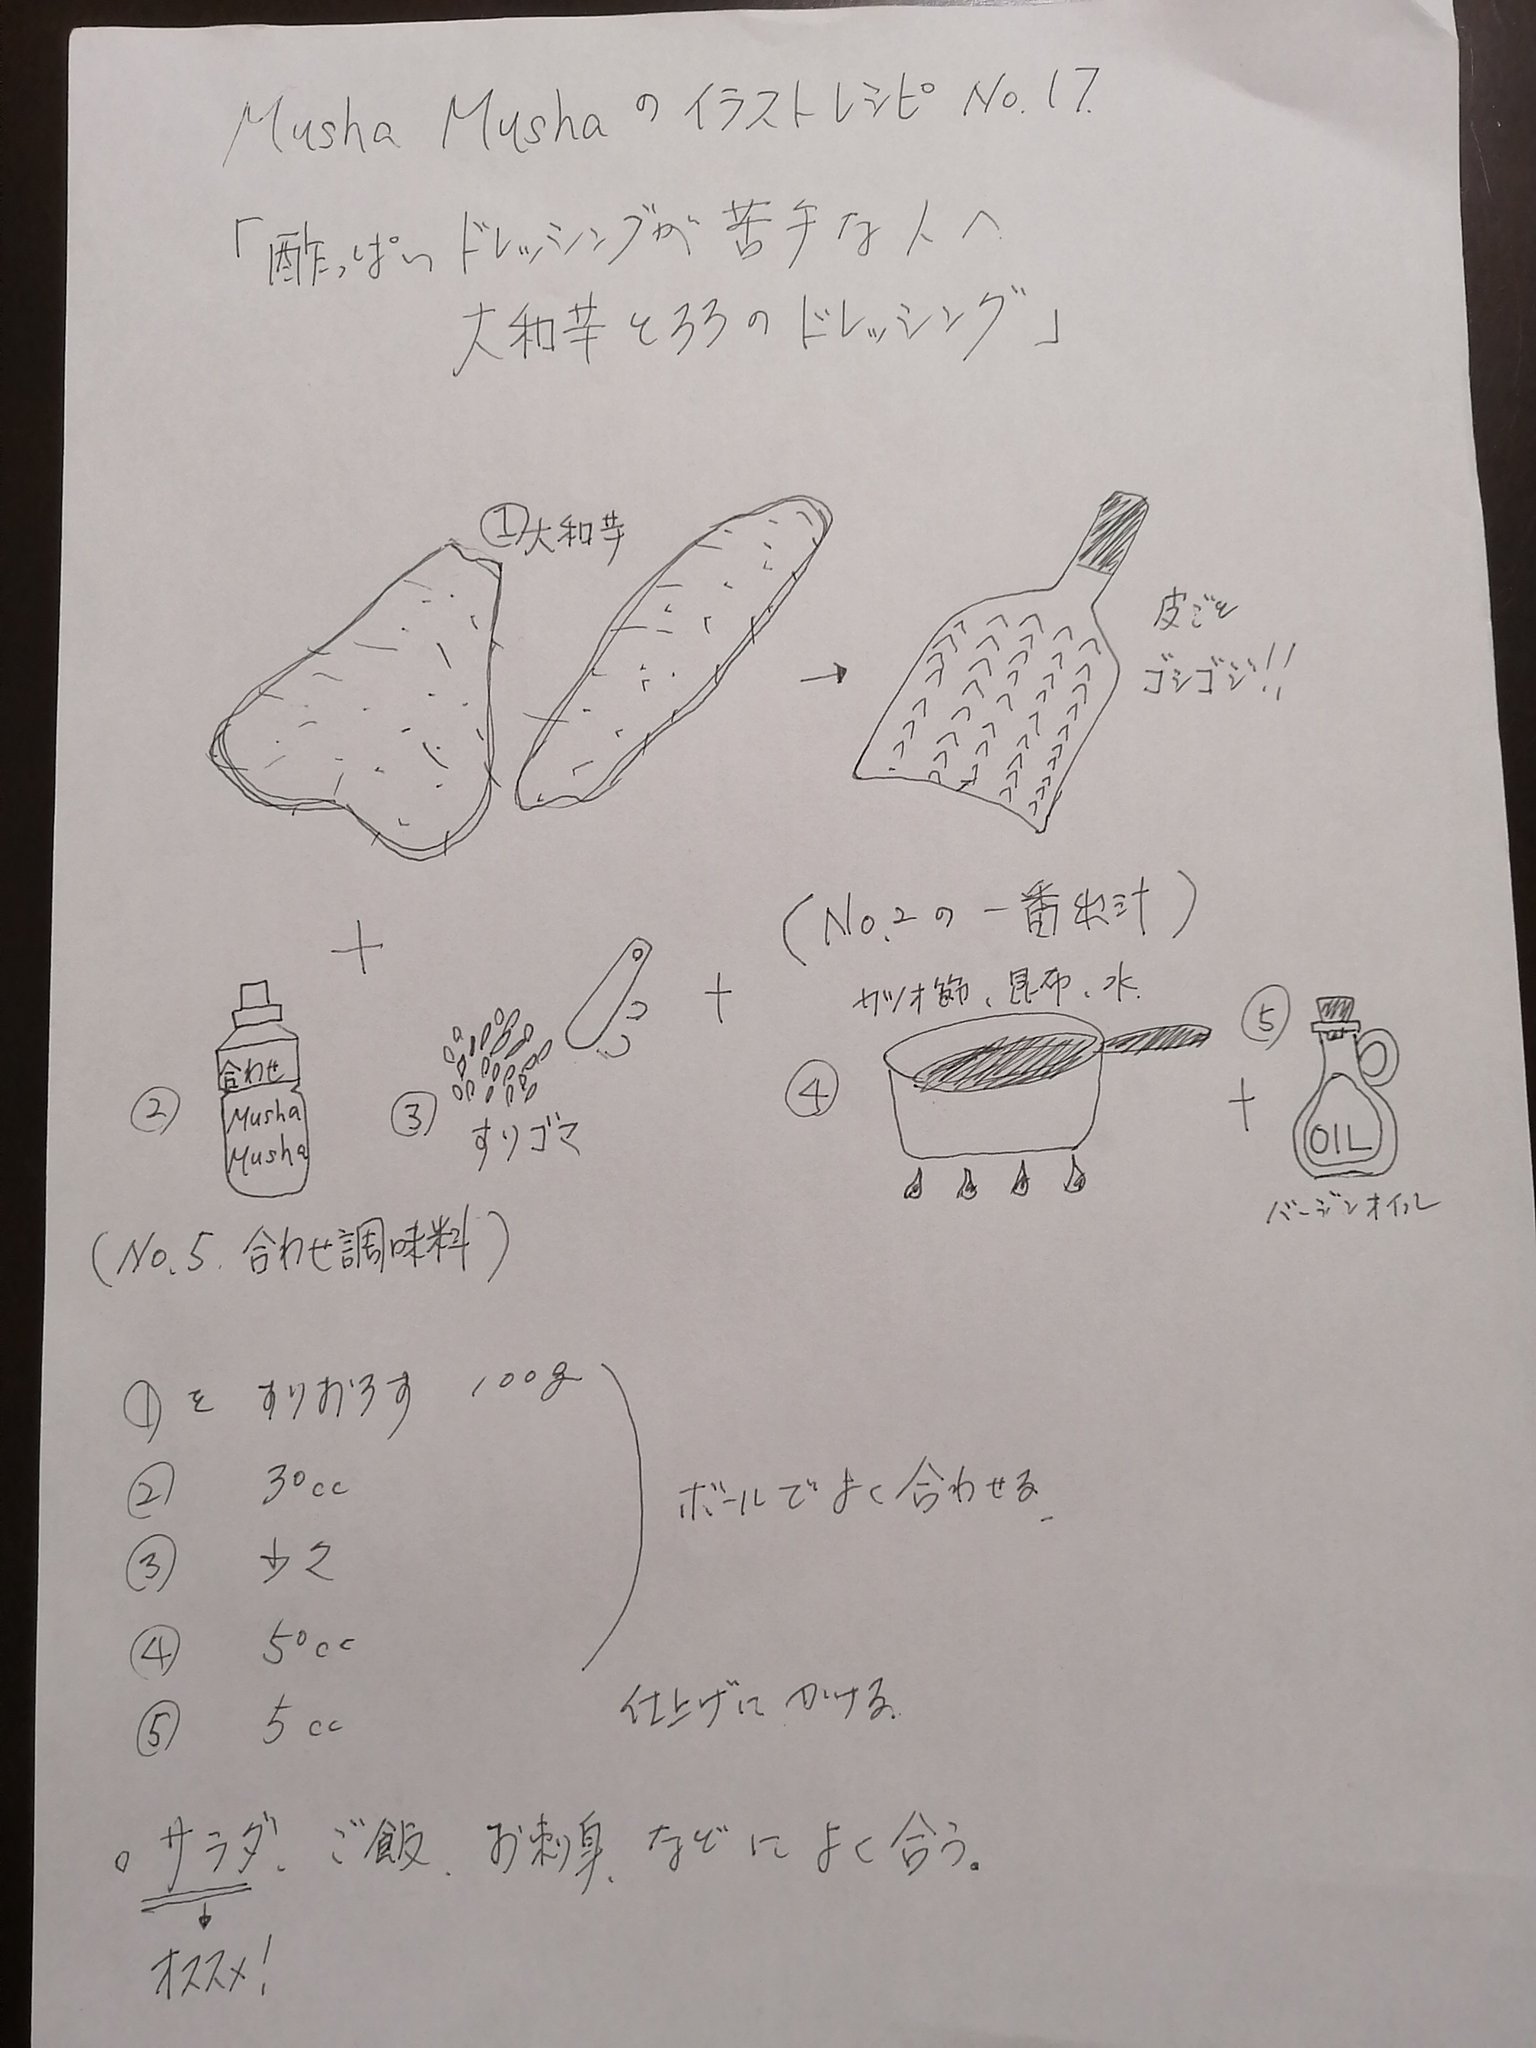 Musha Mushaのイラストレシピ No.17.
「酢っぱいドレッシングが苦手な人へ
大和芋とろろのドレッシング」
①大和芋
皮ごと
ゴシゴシ!!
(No.2の一番出汁)
カツオ節、昆布、水
②
合わせ
Musha
Musha
③
すりゴマ
④
⑤
OIL
バージンオイル
(No.5.合わせ調味料)
①を すりおろす 100g
② 30cc
ボールでよく合わせる。
③ 少々
④ 50cc
⑤ 5cc
仕上げにかける。
○サラダ、ご飯、お刺身、などによく合う。
オススメ!